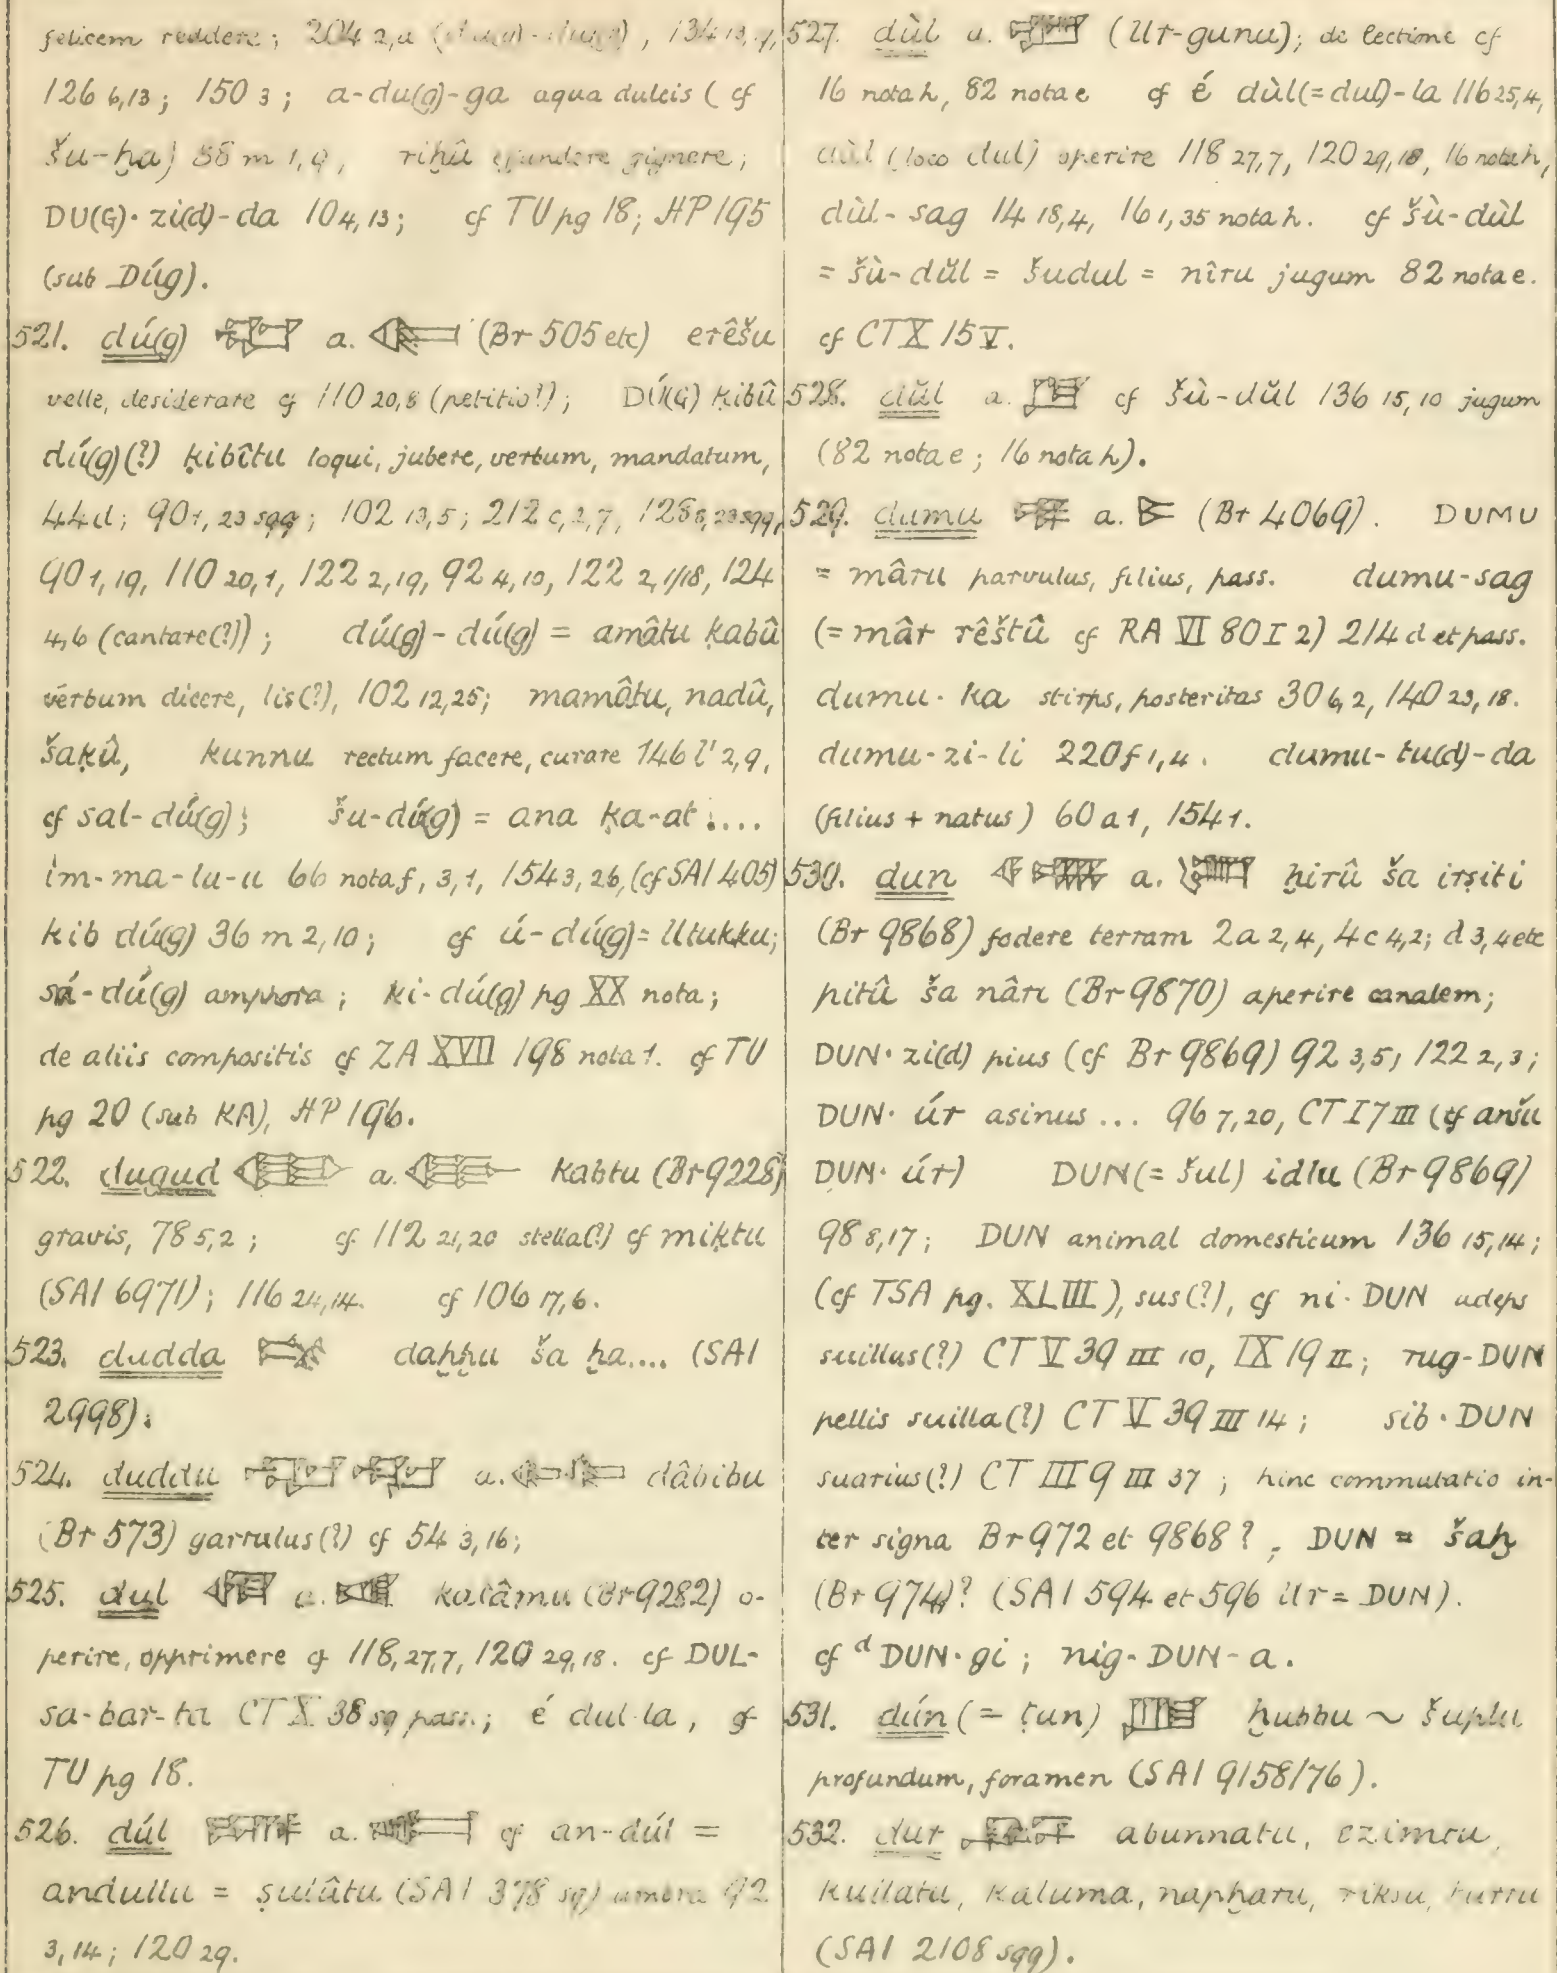 felicem reddere; 204 2,a 134 13,9,
126 6,13; 150 3; a-du(g)-ga aqua dulcis (cf
šu-ḫa) 58 m 1,9, riḫû effundere gignere;
DU(G)·zi(d)-da 104,13; cf TU pg 18; HP 195
(sub Dúg).
521. dú(g) a. (Br 505 etc) erêšu
velle, desiderare cf 110 20,8 (petitio!); DÚ(G) ḳibû
dú(g)(?) ḳibîtu loqui, jubere, verbum, mandatum,
44d; 90 1, 23 sqq; 102 13,5; 212 c,2,7, 128 8,23 sqq,
90 1,19, 110 20,1, 122 2,19, 92 4,10, 122 2,1/18, 124
4,6 (cantare(?)); dú(g)-dú(g) = amâtu ḳabû
verbum dicere, lis(?), 102 12,25; mamâtu, nadû,
šaḳû, kunnu rectum facere, curare 146 l' 2,9,
cf sal-dú(g); šu-dú(g) = ana ḳa-at ....
im-ma-lu-u 66 nota f, 3,1, 154 3,26, (cf SAI 405)
kib dú(g) 36 m 2,10; cf ú-dú(g) = Utukku;
sá-dú(g) amphora; ki-dú(g) pg XX nota;
de aliis compositis cf ZA XVII 198 nota 1. cf TU
pg 20 (sub KA), HP 196.
522. dugud a. kabtu (Br 9228)
gravis, 78 5,2; cf 112 21,20 stella(?) cf miḳtu
(SAI 6971); 116 24,14. cf 106 17,6.
523. dudda daḫḫu ša ḫa.... (SAI
2998).
524. duddu a. dâbibu
(Br 573) garrulus(?) cf 54 3,16;
525. dul a. katâmu (Br 9282) o-
perire, opprimere cf 118, 27,7, 120 29,18. cf DUL-
sa-bar-ta CT X 38 sq pass.; é dul-la, cf
TU pg 18.
526. dúl a. cf an-dúl =
andullu = ṣulûtu (SAI 378 sq) umbra 92
3,14; 120 29.
527. dùl a. (Ur-gunu); de lectione cf
16 nota h, 82 nota e cf é dùl(=dul)-la 116 25,4,
dùl (loco dul) operire 118 27,7, 120 29,18, 16 nota h,
dùl-sag 14 18,4, 16 1,35 nota h. cf šù-dùl
= šù-dŭl = šudul = nîru jugum 82 nota e.
cf CT X 15 V.
528. dŭl a. cf šù-dŭl 136 15,10 jugum
(82 nota e; 16 nota h).
529. dumu a. (Br 4069). DUMU
= mâru parvulus, filius, pass. dumu-sag
(= mâr rêštû cf RA VI 80 I 2) 214 d et pass.
dumu·ka stirps, posteritas 30 6,2, 140 23,18.
dumu-zi-li 220 f 1,4. dumu-tu(d)-da
(filius + natus) 60 a 1, 154 1.
530. dun a. ḫirû ša irṣiti
(Br 9868) fodere terram 2 a 2,4, 4 c 4,2; d 3,4 etc
pitû ša nâri (Br 9870) aperire canalem;
DUN·zi(d) pius (cf Br 9869) 92 3,5, 122 2,3;
DUN·úr asinus ... 96 7,20, CT I 7 III (cf anšu
DUN·úr) DUN (= šul) idlu (Br 9869)
98 8,17; DUN animal domesticum 136 15,14;
(cf TSA pg. XLIII), sus(?), cf ni·DUN adeps
suillus(?) CT V 39 III 10, IX 19 II; rug-DUN
pellis suilla(?) CT V 39 III 14; sib·DUN
suarius(?) CT III 9 III 37; hinc commutatio in-
ter signa Br 972 et 9868?, DUN = šaḫ
(Br 974)? (SAI 594 et 596 Ur = DUN).
cf d DUN·gi; nig-DUN-a.
531. dún (= ṭun) ḫubbu ~ šuplu
profundum, foramen (SAI 9158/76).
532. dur abunnatu, ezimtu,
kullatu, kaluma, napḫaru, riksu, turru
(SAI 2108 sqq).